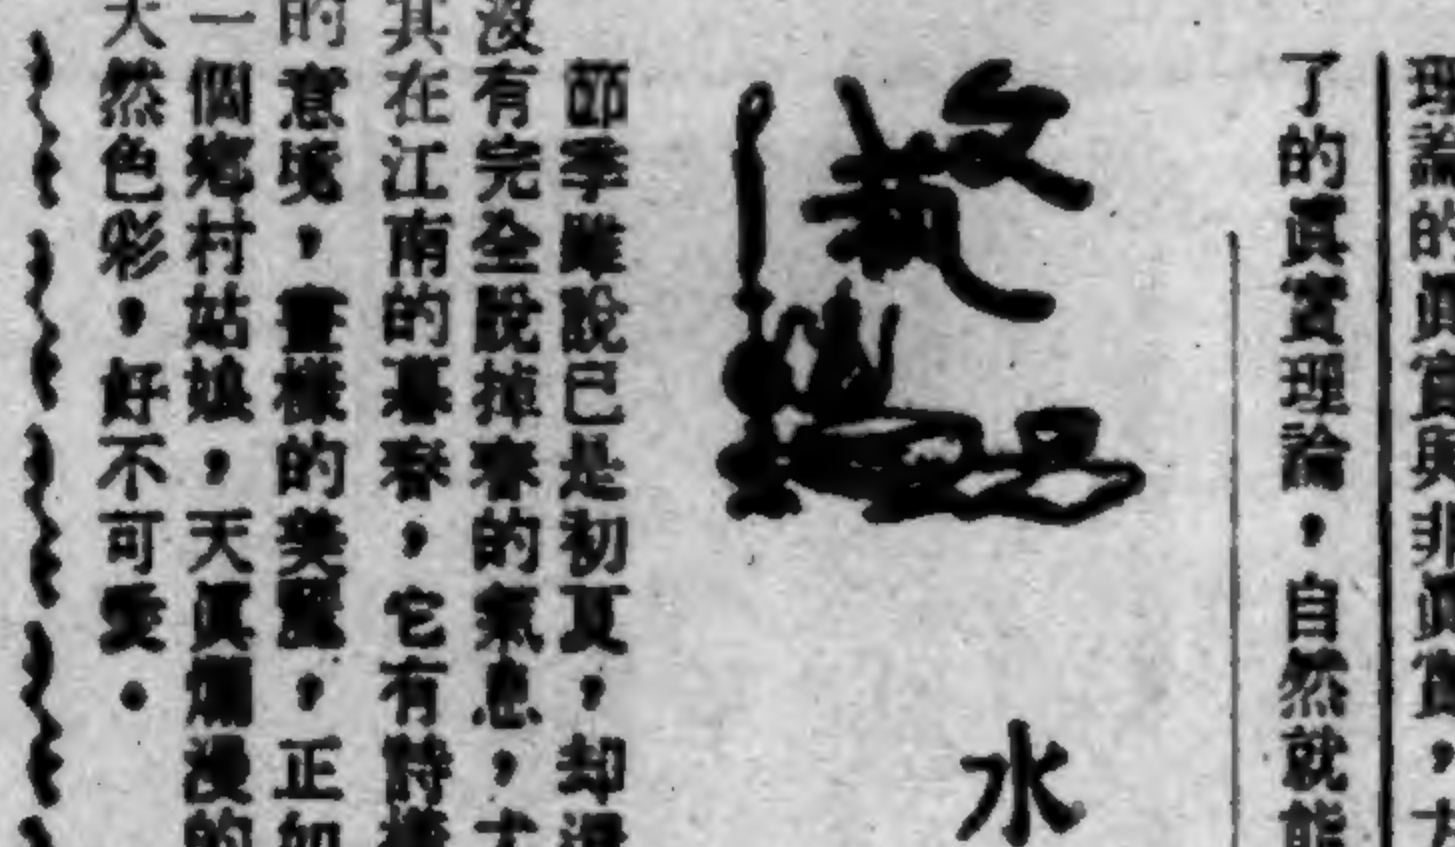 理論的眞實與非眞實，
了的眞實理論，自然就能
水
節季雖說已是初夏，却
沒有完全說掉春的氣息，尤
其在江南的暮春，它有詩
的意境，畫樣的美麗，正如
一個鄉村姑娘，天眞爛漫的
大然色彩，好不可愛。